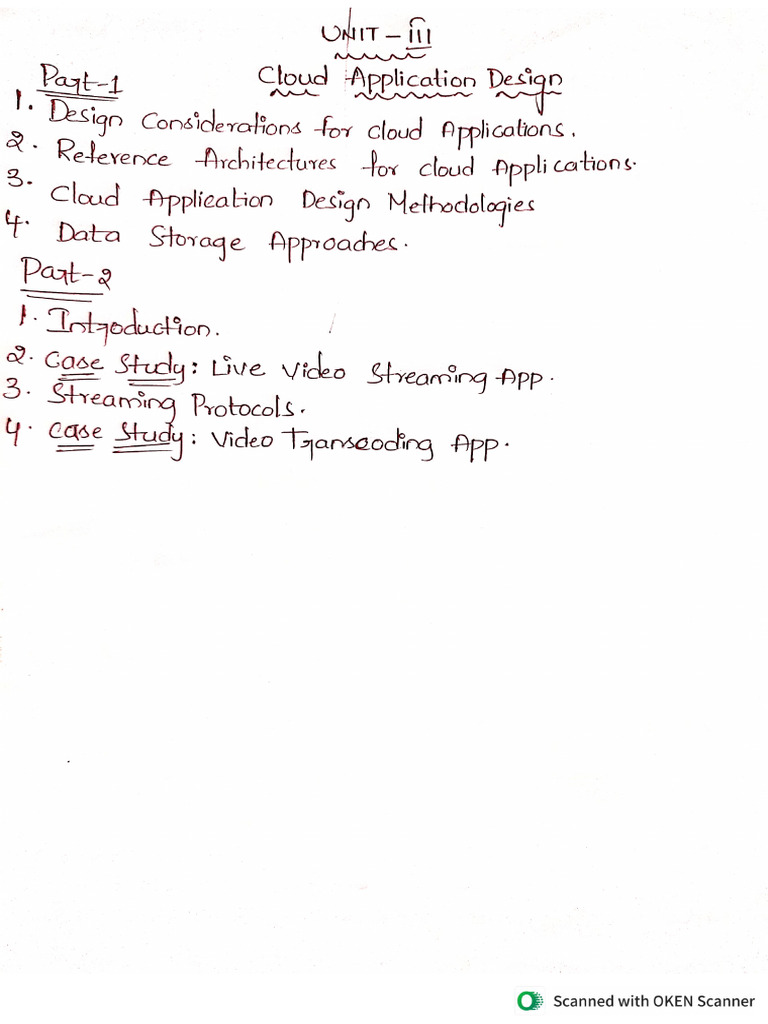 UNIT - III
Cloud Application Design
Part-1
1. Design Considerations for cloud Applications.
2. Reference Architectures for cloud Applications.
3. Cloud Application Design Methodologies
4. Data Storage Approaches.
Part-2
1. Introduction.
2. Case Study: Live Video Streaming App.
3. Streaming Protocols.
4. Case Study: Video Transcoding App.
Scanned with OKEN Scanner